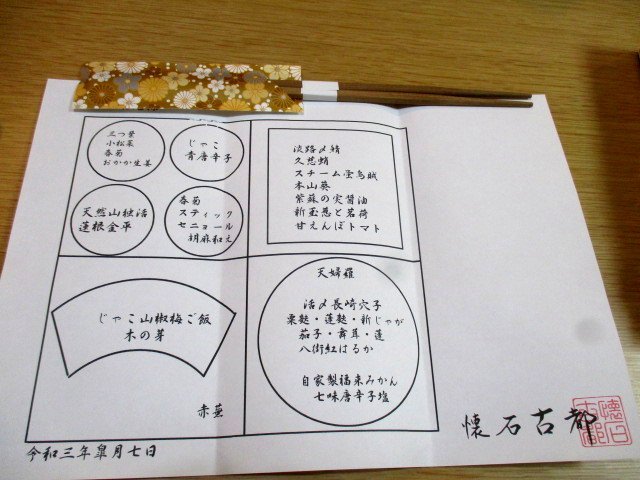 三つ葉
小松菜
春菊
おかか生姜
じゃこ
青唐辛子
天然山独活
蓮根金平
春菊
スティック
セニョール
胡麻和え
淡路〆鯖
久慈蛸
スチーム蛍烏賊
本山葵
紫蘇の実醤油
新玉葱と茗荷
甘えんぼトマト
じゃこ山椒梅ご飯
木の芽
赤蕪
天婦羅
活〆長崎穴子
粟麩・蓮麩・新じゃが
茄子・舞茸・蓮
八街紅はるか
自家製福来みかん
七味唐辛子塩
令和三年皐月七日
懐石古都